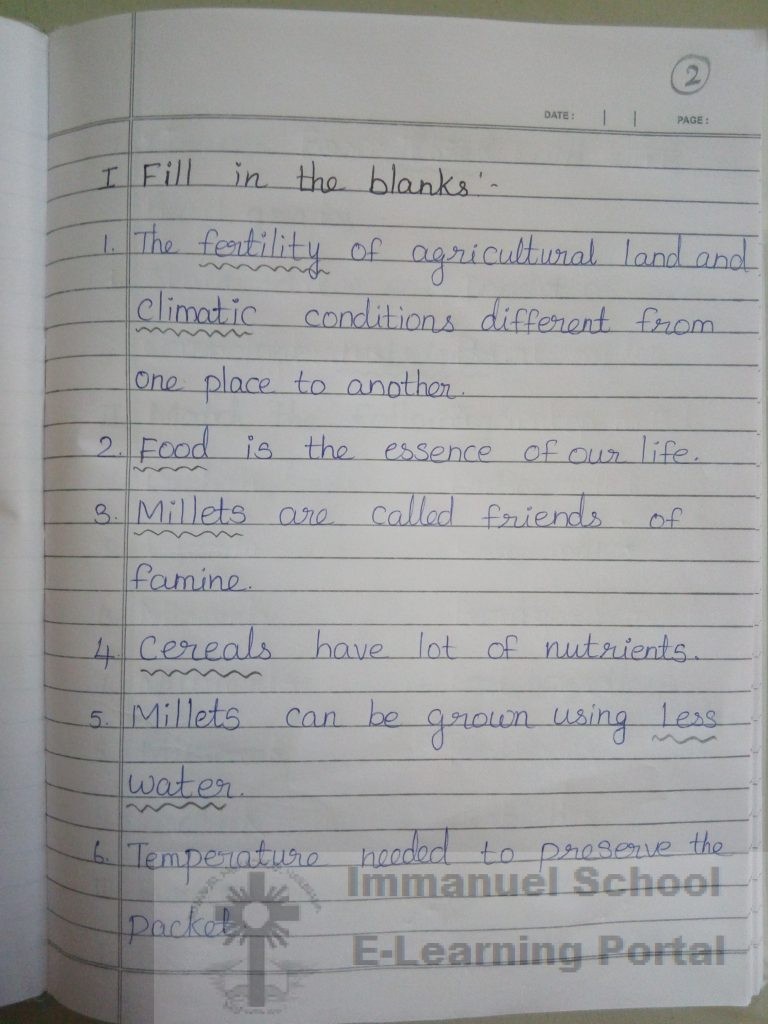 2
DATE: | | PAGE:
I Fill in the blanks:-
1. The fertility of agricultural land and
climatic conditions different from
one place to another.
2. Food is the essence of our life.
3. Millets are called friends of
famine.
4. Cereals have lot of nutrients.
5. Millets can be grown using less
water.
6. Temperature needed to preserve the
packet
Immanuel School
E-Learning Portal